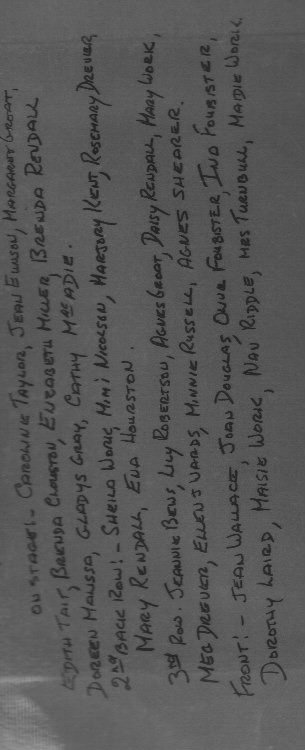 ON STAGE! - CAROLINE TAYLOR, JEAN EUNSON, MARGARET GROAT,
EDITH TAIT, BRENDA CLOUSTON, ELIZABETH MILLER, BRENDA RENDALL
DOREEN MANSSA, GLADYS GRAY, CATHY MCADIE.
2ND BACK ROW! - SHEILA WORK, MIMI NICOLSON, MARJORY KENT, ROSEMARY DREVER
MARY RENDALL, EVA HOURSTON.
3RD ROW. JEANNIE BEWS, LILY ROBERTSON, AGNES GROAT, DAISY RENDALL, MARY WORK,
MEG DREVER, ELLEN SWARDS, MINNIE RUSSELL, AGNES SHEARER.
FRONT! - JEAN WALLACE, JOAN DOUGLAS, OLIVE FOUBISTER, INA FOUBISTER,
DOROTHY LAIRD, MAISIE WORK, NAN RIDDLE, MRS TURNBULL, MAIDIE WORK